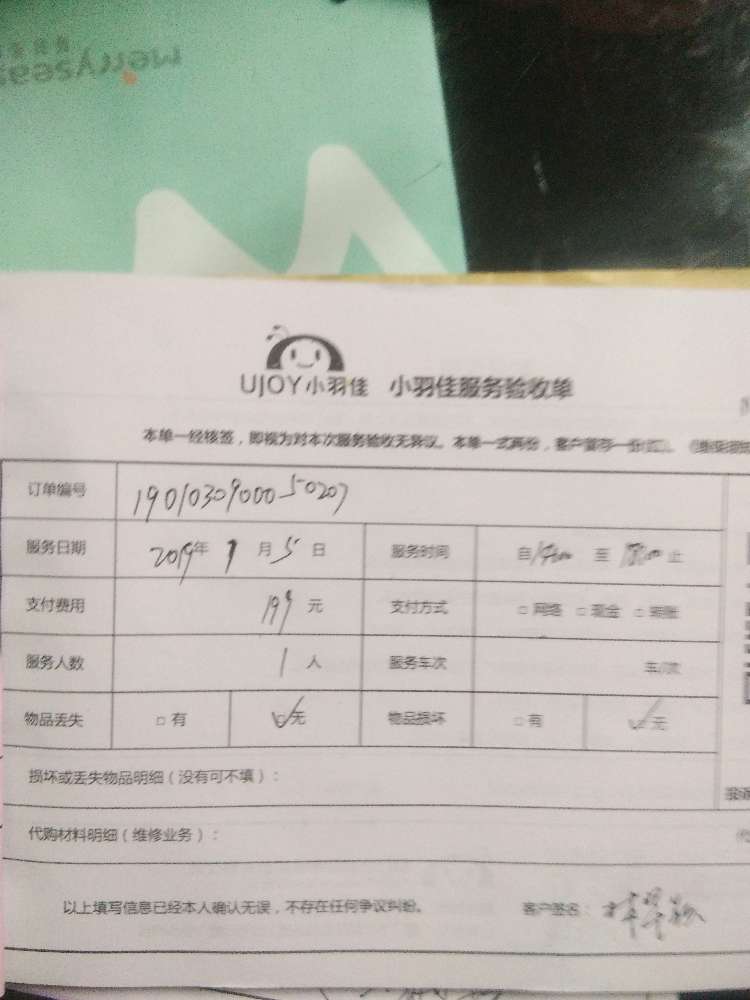 Merryseas
UJOY小羽佳 小羽佳服务验收单
本单一经核签，即视为对本次服务验收无异议。本单一式两份，客户留存一份
订单编号 1901030900050207
服务日期 2019年 1月 5日 服务时间 自 至 止
支付费用 199元 支付方式 □ 网络 □ 现金 □ 转账
服务人数 1人 服务车次 车/次
物品丢失 □ 有 ☑无 物品损坏 □ 有 ☑无
损坏或丢失物品明细（没有可不填）：
代购材料明细（维修业务）：
以上填写信息已经本人确认无误，不存在任何争议纠纷。 客户签名：